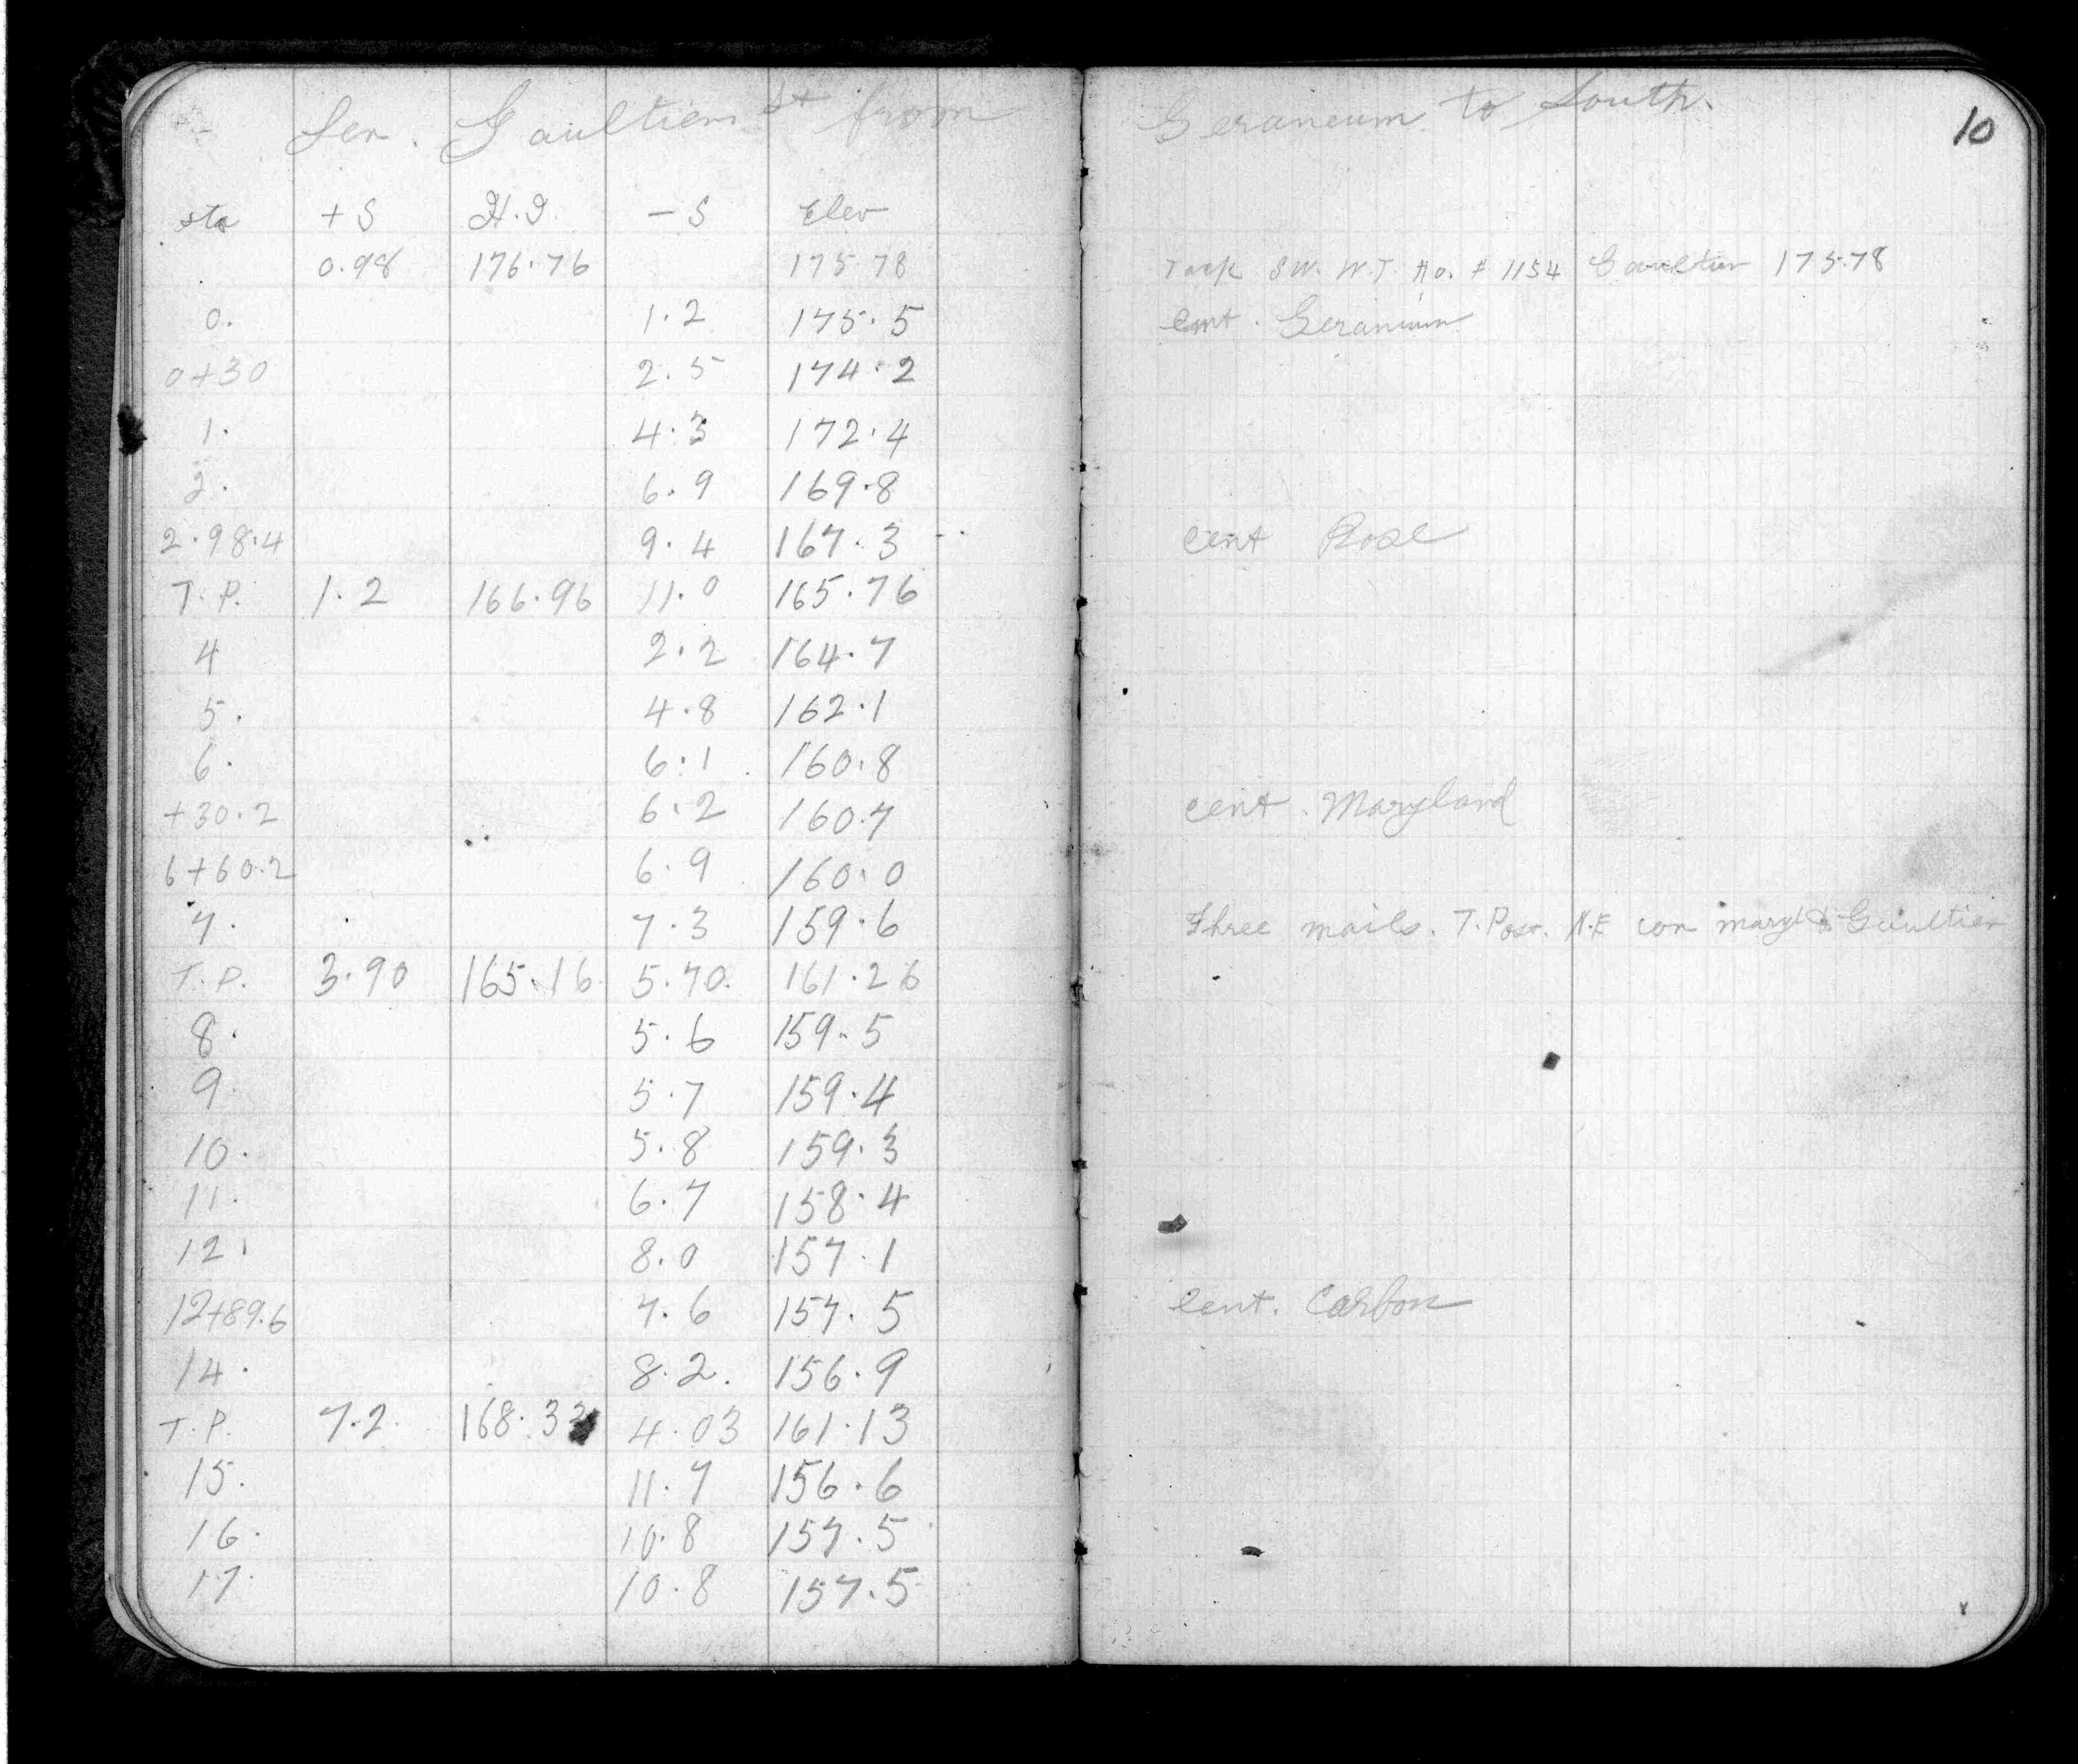 Lev. Gaultier St from Geraneum to South.
10
sta +S H.I. -S Elev
0.98 176.76 175.78 Tack S.W. W.T. Ho. # 1154 Gaultier 175.78
0. 1.2 175.5 Cent. Geranium
0+30 2.5 174.2
1. 4.3 172.4
2. 6.9 169.8
2.98.4 9.4 167.3 cent Rose
T.P. 1.2 166.96 11.0 165.76
4 2.2 164.7
5. 4.8 162.1
6. 6.1 160.8
+30.2 6.2 160.7 cent. Maryland
6+60.2 6.9 160.0
7. 7.3 159.6 Three nails. T. Post. N.E cor Maryld & Gaultier
T.P. 3.90 165.16 5.70. 161.26
8. 5.6 159.5
9. 5.7 159.4
10. 5.8 159.3
11. 6.7 158.4
12. 8.0 157.1
12+89.6 7.6 157.5 Cent. Carbon
14. 8.2. 156.9
T.P. 7.2. 168.33 4.03 161.13
15. 11.7 156.6
16. 10.8 157.5
17. 10.8 157.5